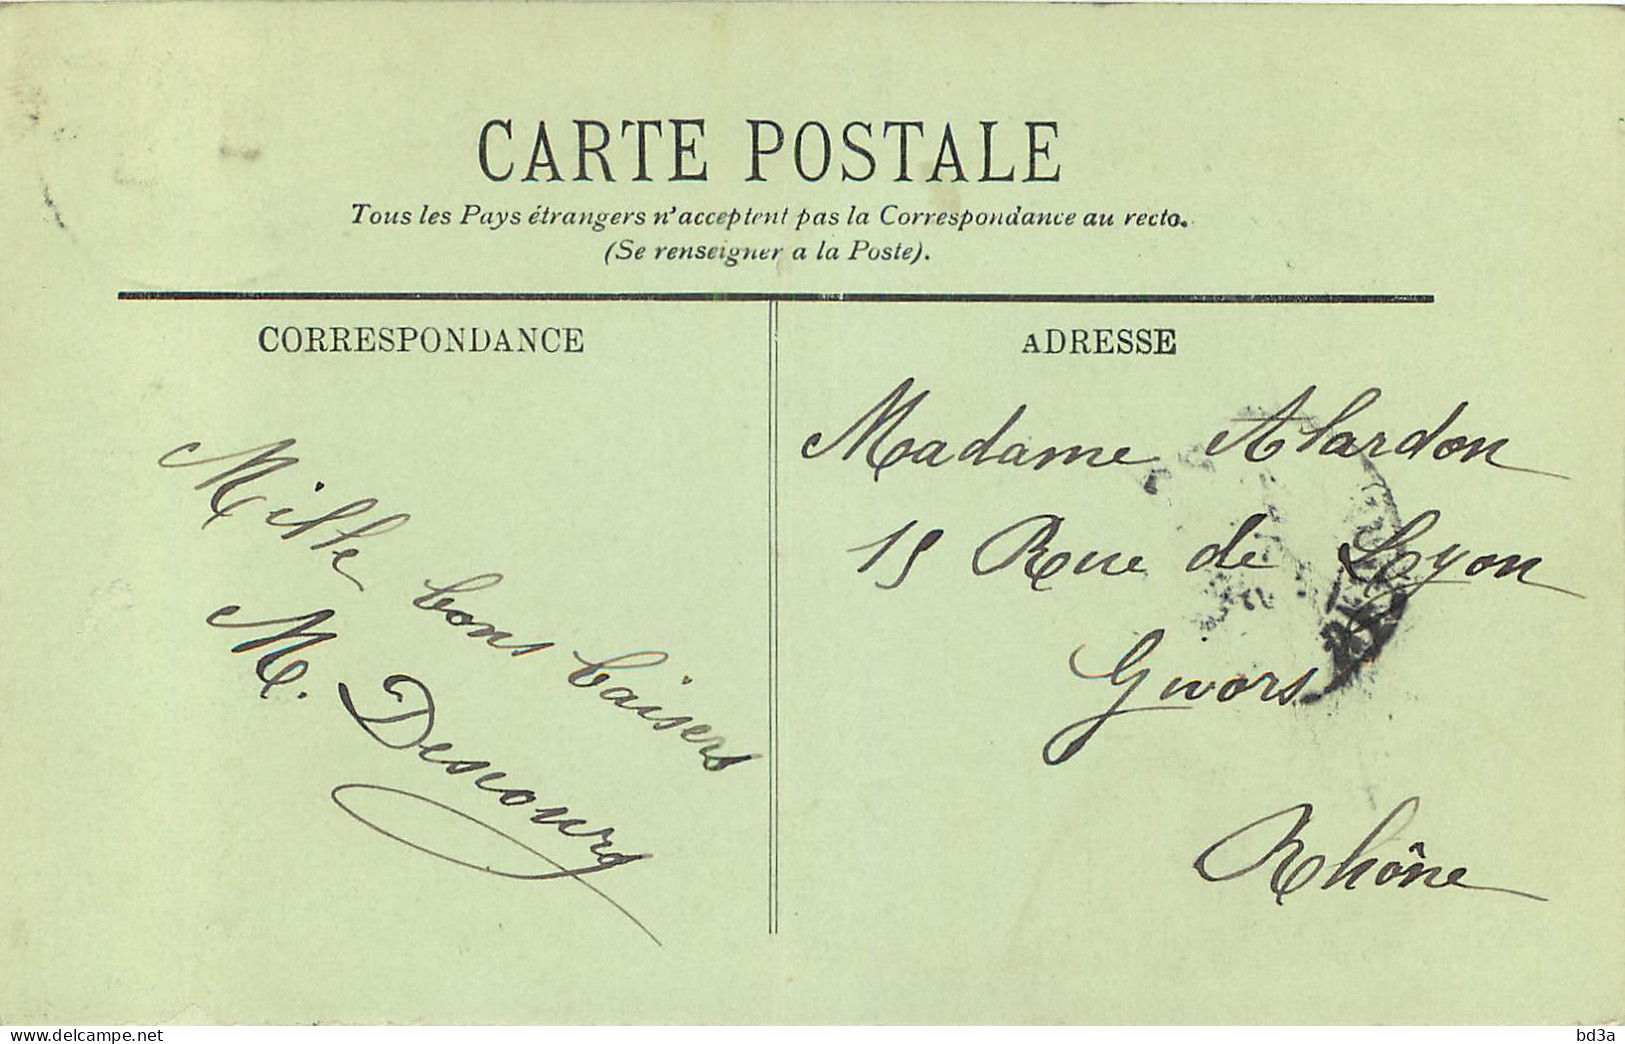 CARTE POSTALE
Tous les Pays étrangers n'acceptent pas la Correspondance au recto.
(Se renseigner a la Poste).
CORRESPONDANCE
Mille bons baisers
M. Descours
ADRESSE
Madame Alardon
15 Rue de Lyon
Givors
Rhône
www.delcampe.net
bd3a